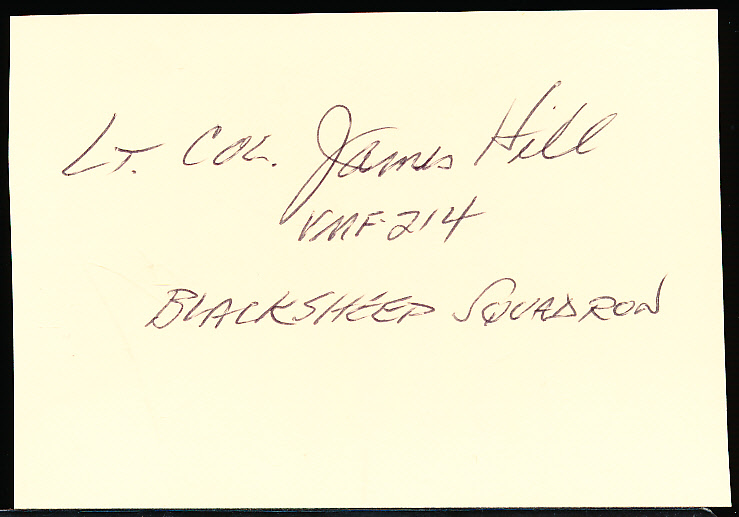 Lt. Col. James Hill
VMF-214
BLACKSHEEP SQUADRON